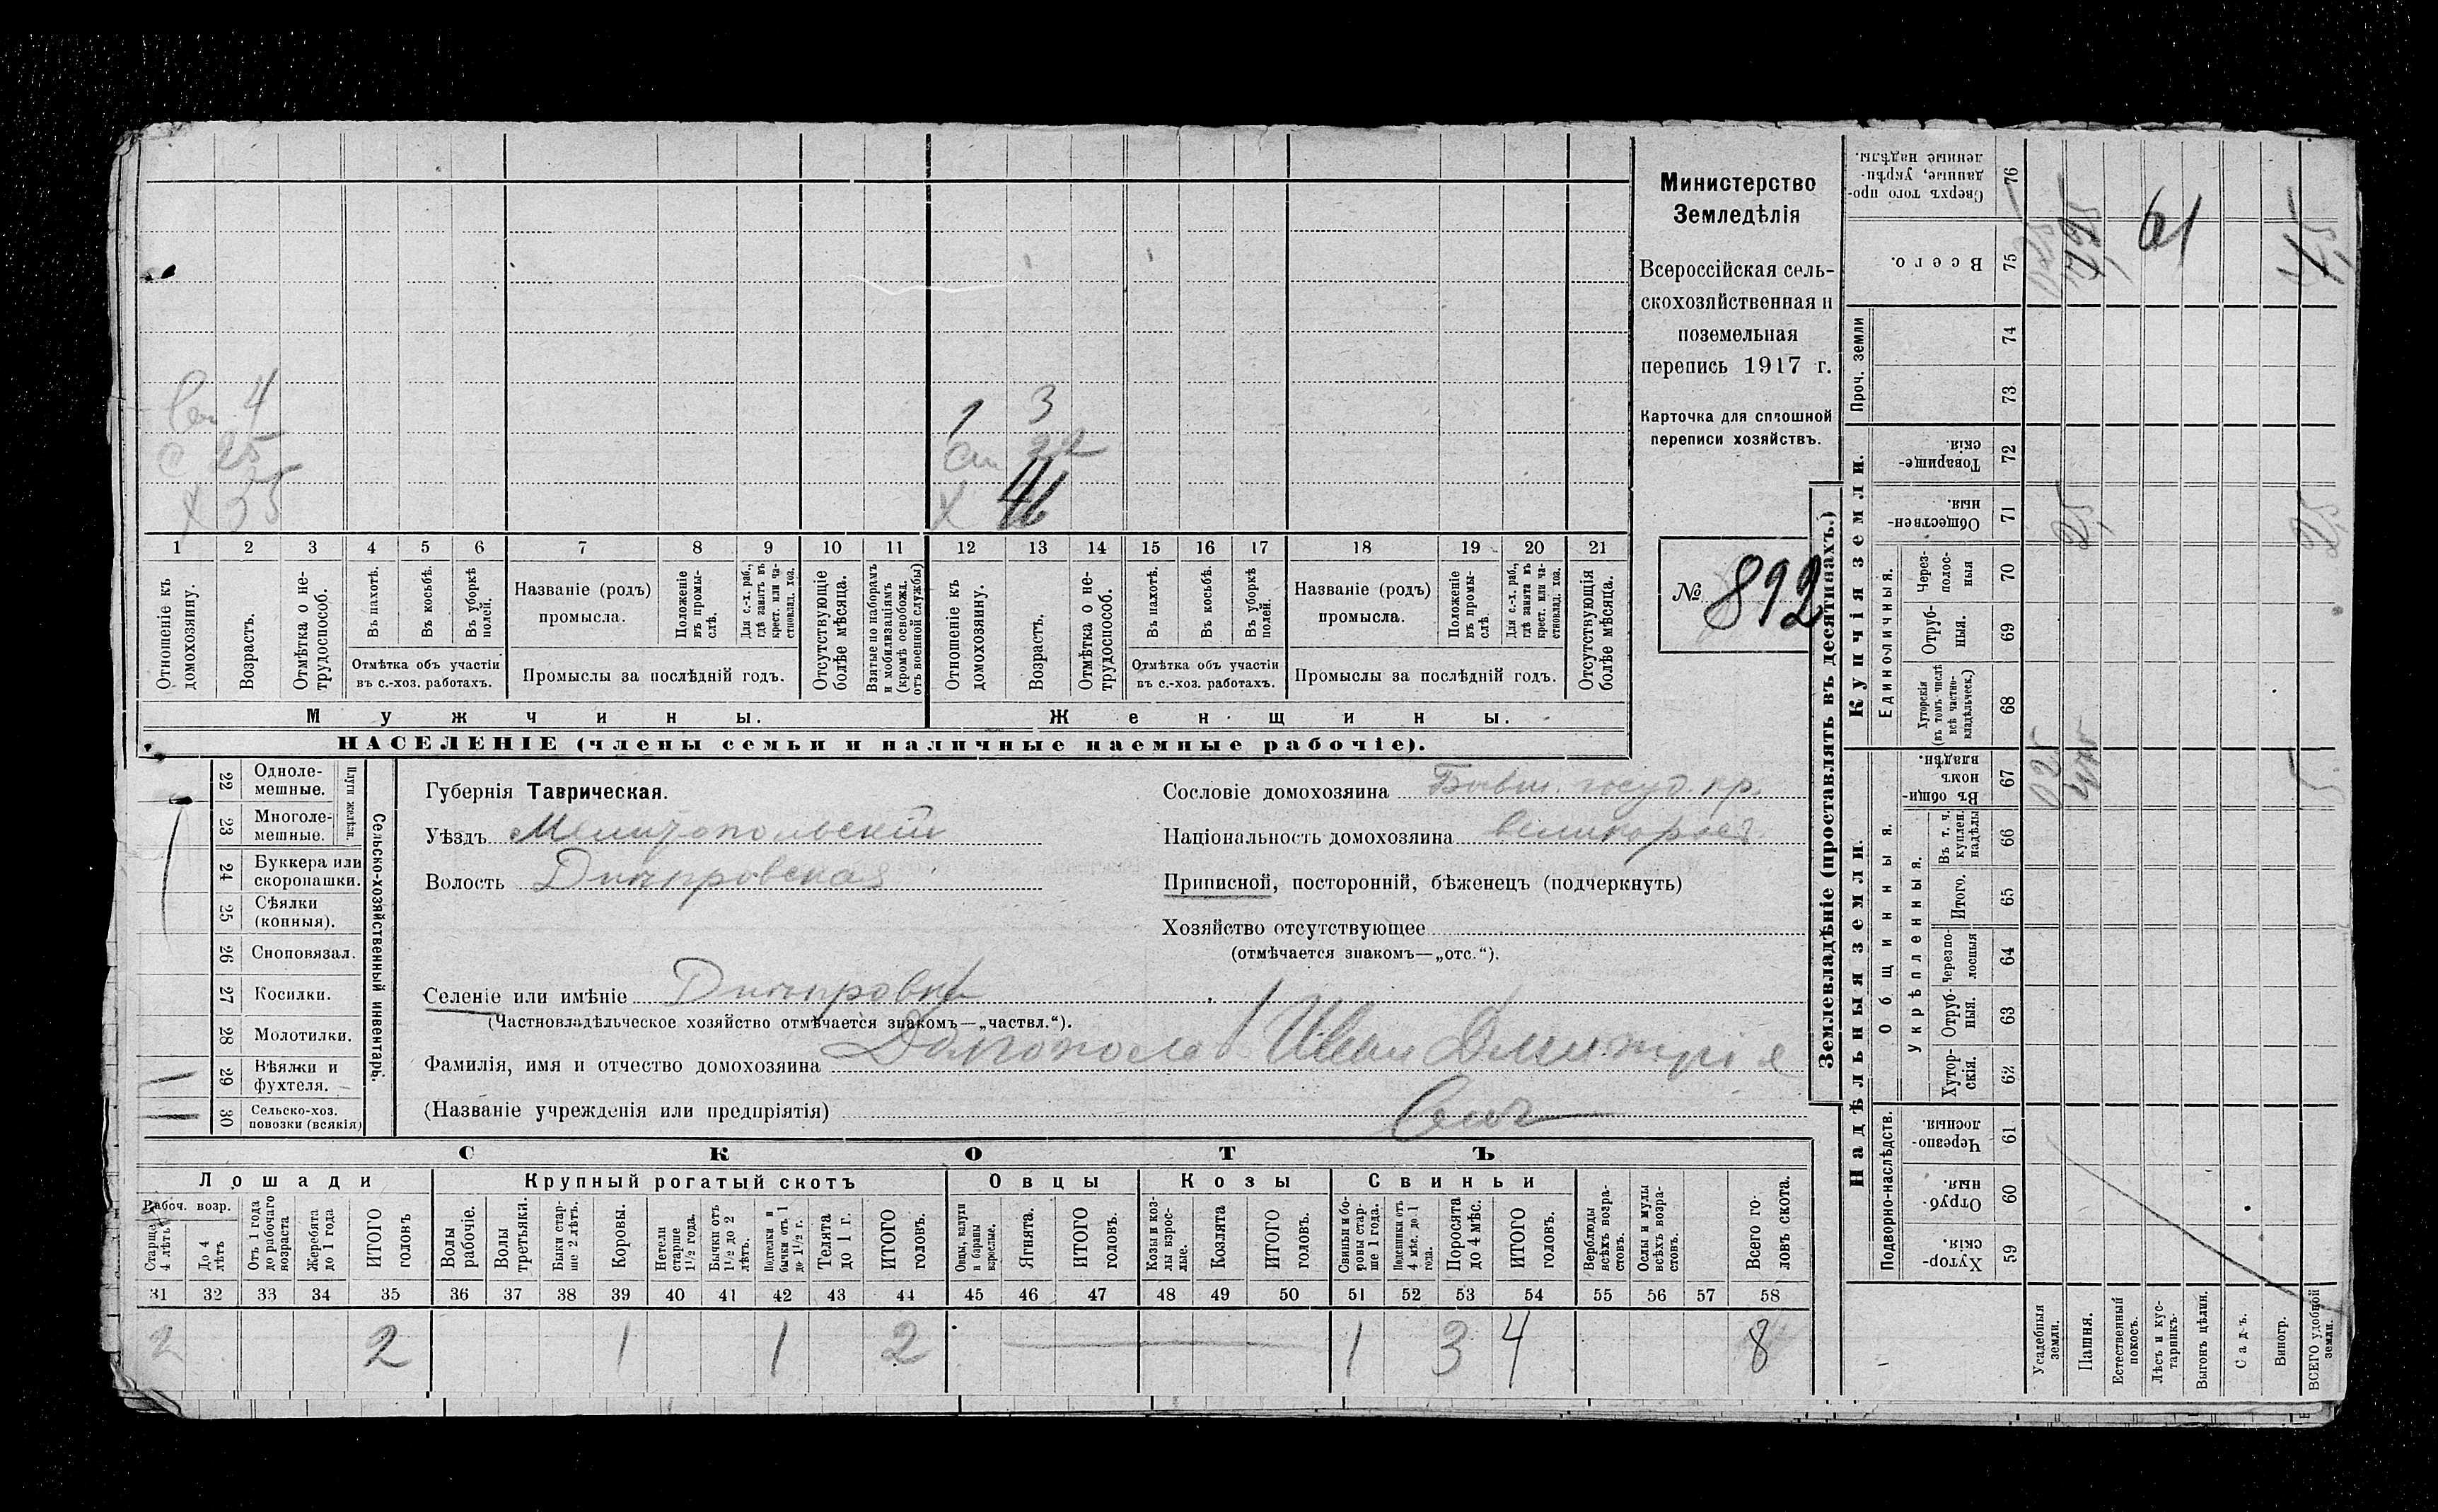 Министерство
Земледѣлія
Всероссійская сель-
скохозяйственная и
поземельная
перепись 1917 г.
Карточка для сплошной
переписи хозяйствъ.
№ 892
4
с 25
х 35
1 3
22
х 46
1 2 3 4 5 6 7 8 9 10 11 12 13 14 15 16 17 18 19 20 21
Отношеніе къ домохозяину.
Возрастъ.
Отмѣтка о не-трудоспособ.
Въ пахотѣ.
Въ косьбѣ.
Въ уборкѣ полей.
Отмѣтка объ участіи
въ с.-хоз. работахъ.
Названіе (родъ)
промысла.
Положеніе въ промы-слѣ.
Для с.-х. раб., гдѣ занятъ въ крест. или ча-стновлад. хоз.
Промыслы за послѣдній годъ.
Отсутствующіе болѣе мѣсяца.
Взятые по наборамъ и мобилизаціямъ (кромѣ освобожд. отъ военной службы)
Отношеніе къ домохозяину.
Возрастъ.
Отмѣтка о не-трудоспособ.
Въ пахотѣ.
Въ косьбѣ.
Въ уборкѣ полей.
Отмѣтка объ участіи
въ с.-хоз. работахъ.
Названіе (родъ)
промысла.
Положеніе въ промы-слѣ.
Для с.-х. раб., гдѣ занята въ крест. или ча-стновлад. хоз.
Промыслы за послѣдній годъ.
Отсутствующія болѣе мѣсяца.
Мужчины.
Женщины.
НАСЕЛЕНІЕ (члены семьи и наличные наемные рабочіе).
Сельско-хозяйственный инвентарь.
Плуги желѣзн.
22 Одноле-мешные.
23 Многоле-мешные.
24 Буккера или скоропашки.
25 Сѣялки (конныя).
26 Сноповязал.
27 Косилки.
28 Молотилки.
29 Вѣялки и фухтеля.
30 Сельско-хоз. повозки (всякія)
Губернія Таврическая.
Уѣздъ Мелитопольскій
Волость Днѣпровская
Селеніе или имѣніе Днѣпровка
(Частновладѣльческое хозяйство отмѣчается знакомъ—„частвл.“).
Фамилія, имя и отчество домохозяина Долгополов Иван Дмитріе
(Названіе учрежденія или предпріятія)
Сословіе домохозяина Бывш. госуд. кр.
Національность домохозяина великоросс
Приписной, посторонній, бѣженецъ (подчеркнуть)
Хозяйство отсутствующее
(отмѣчается знакомъ—„отс.“).
СКОТЪ
Лошади
Крупный рогатый скотъ
Овцы
Козы
Свиньи
Рабоч. возр.
Старше 4 лѣтъ
До 4 лѣтъ
Отъ 1 года до рабочаго возраста
Жеребята до 1 года
ИТОГО головъ
Волы рабочіе.
Волы третьяки.
Быки стар-ше 2 лѣтъ.
Коровы.
Нетели старше 1½ года.
Бычки отъ 1½ до 2 лѣтъ.
Подтелки и бычки отъ 1 до 1½ г.
Телята до 1 г.
ИТОГО головъ.
Овцы, валухи и бараны взрослые.
Ягнята.
ИТОГО головъ.
Козы и коз-лы взрос-лые.
Козлята
ИТОГО головъ.
Свиньи и бо-ровы стар-ше 1 года.
Подсвинки отъ 4 мѣс. до 1 года.
Поросята до 4 мѣс.
ИТОГО головъ.
Верблюды всѣхъ возра-стовъ.
Ослы и мулы всѣхъ возра-стовъ.
Всего го-ловъ скота.
31 32 33 34 35 36 37 38 39 40 41 42 43 44 45 46 47 48 49 50 51 52 53 54 55 56 57 58
2 2 1 1 2 1 3 4 8
Землевладѣніе (проставлять въ десятинахъ.)
Купчія земли.
Надѣльныя земли.
Проч. земли
Единоличныя.
Общинныя.
Укрѣпленныя.
Подворно-наслѣдств.
76 Сверхъ того про-данные, укрѣп-ленные надѣлы.
75 Всего.
74
73
72 Товарище-скія
71 Обществен-ныя
70 Через-полос-ныя
69 Отруб-ныя.
68 Хуторскія (въ томъ числѣ всѣ частно-владѣльческ.)
67 Въ общин-номъ владѣн.
66 Въ т. ч. куплен. надѣлы
65 Итого.
64 Черезпо-лосныя
63 Отруб-ныя.
62 Хутор-скія.
61 Черезпо-лосныя.
60 Отруб-ныя.
59 Хутор-скія.
Усадебныя земли.
Пашня.
Естественный покосъ.
Лѣсъ и кус-тарникъ.
Выгонъ цѣлин.
Садъ.
Виногр.
ВСЕГО удобной земли.
61
025